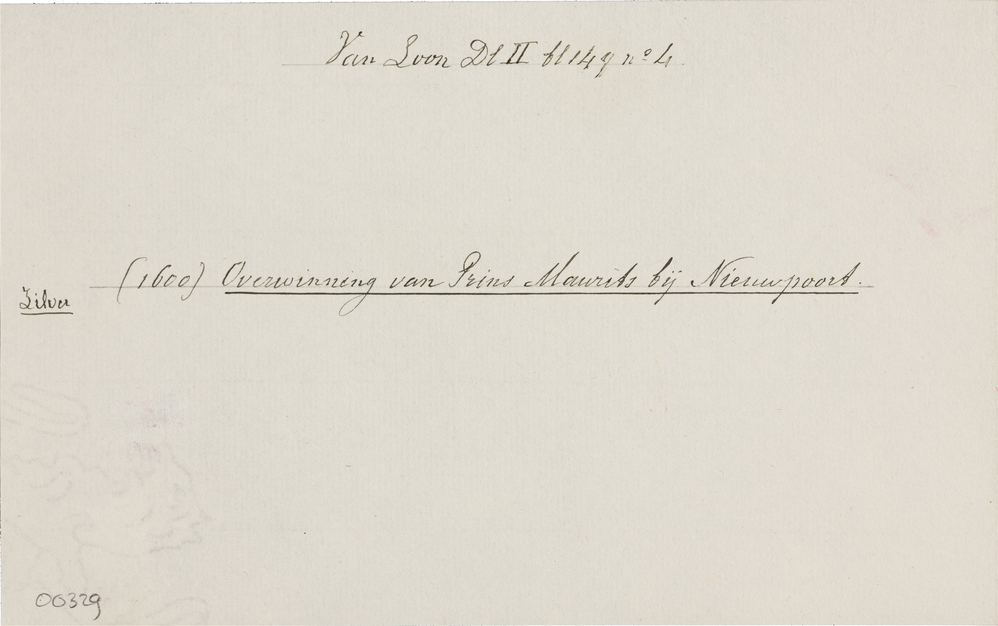 Van Loon Dl II bl 149 no 4
(1600) Overwinning van Prins Maurits bij Nieuwpoort.
Zilver
00329